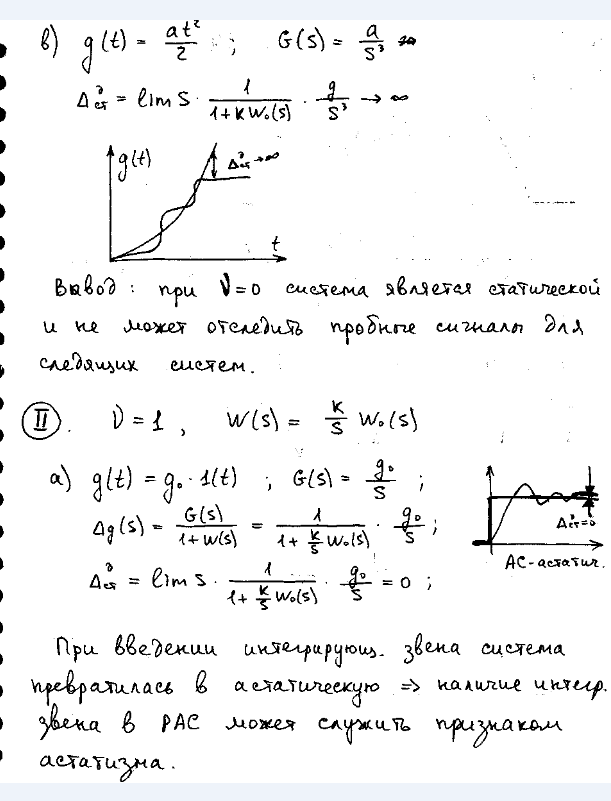 в) g(t) = at²/2 ; G(s) = a/s³
Δ^g_ст = lim s · 1/(1+KW₀(s)) · g/s³ → ∞
g(t) Δ^g_ст→∞
t
Вывод: при ν=0 система является статической
и не может отследить пробные сигналы для
следящих систем.
II. ν = 1, W(s) = K/s W₀(s)
а) g(t) = g₀ · 1(t) ; G(s) = g₀/s ;
Δg(s) = G(s)/(1+W(s)) = 1/(1+K/s W₀(s)) · g₀/s ;
Δ^g_ст=0
АС-астатич.
Δ^g_ст = lim s · 1/(1+K/s W₀(s)) · g₀/s = 0 ;
При введении интегрирующ. звена система
превратилась в астатическую => наличие интегр.
звена в РАС может служить признаком
астатизма.